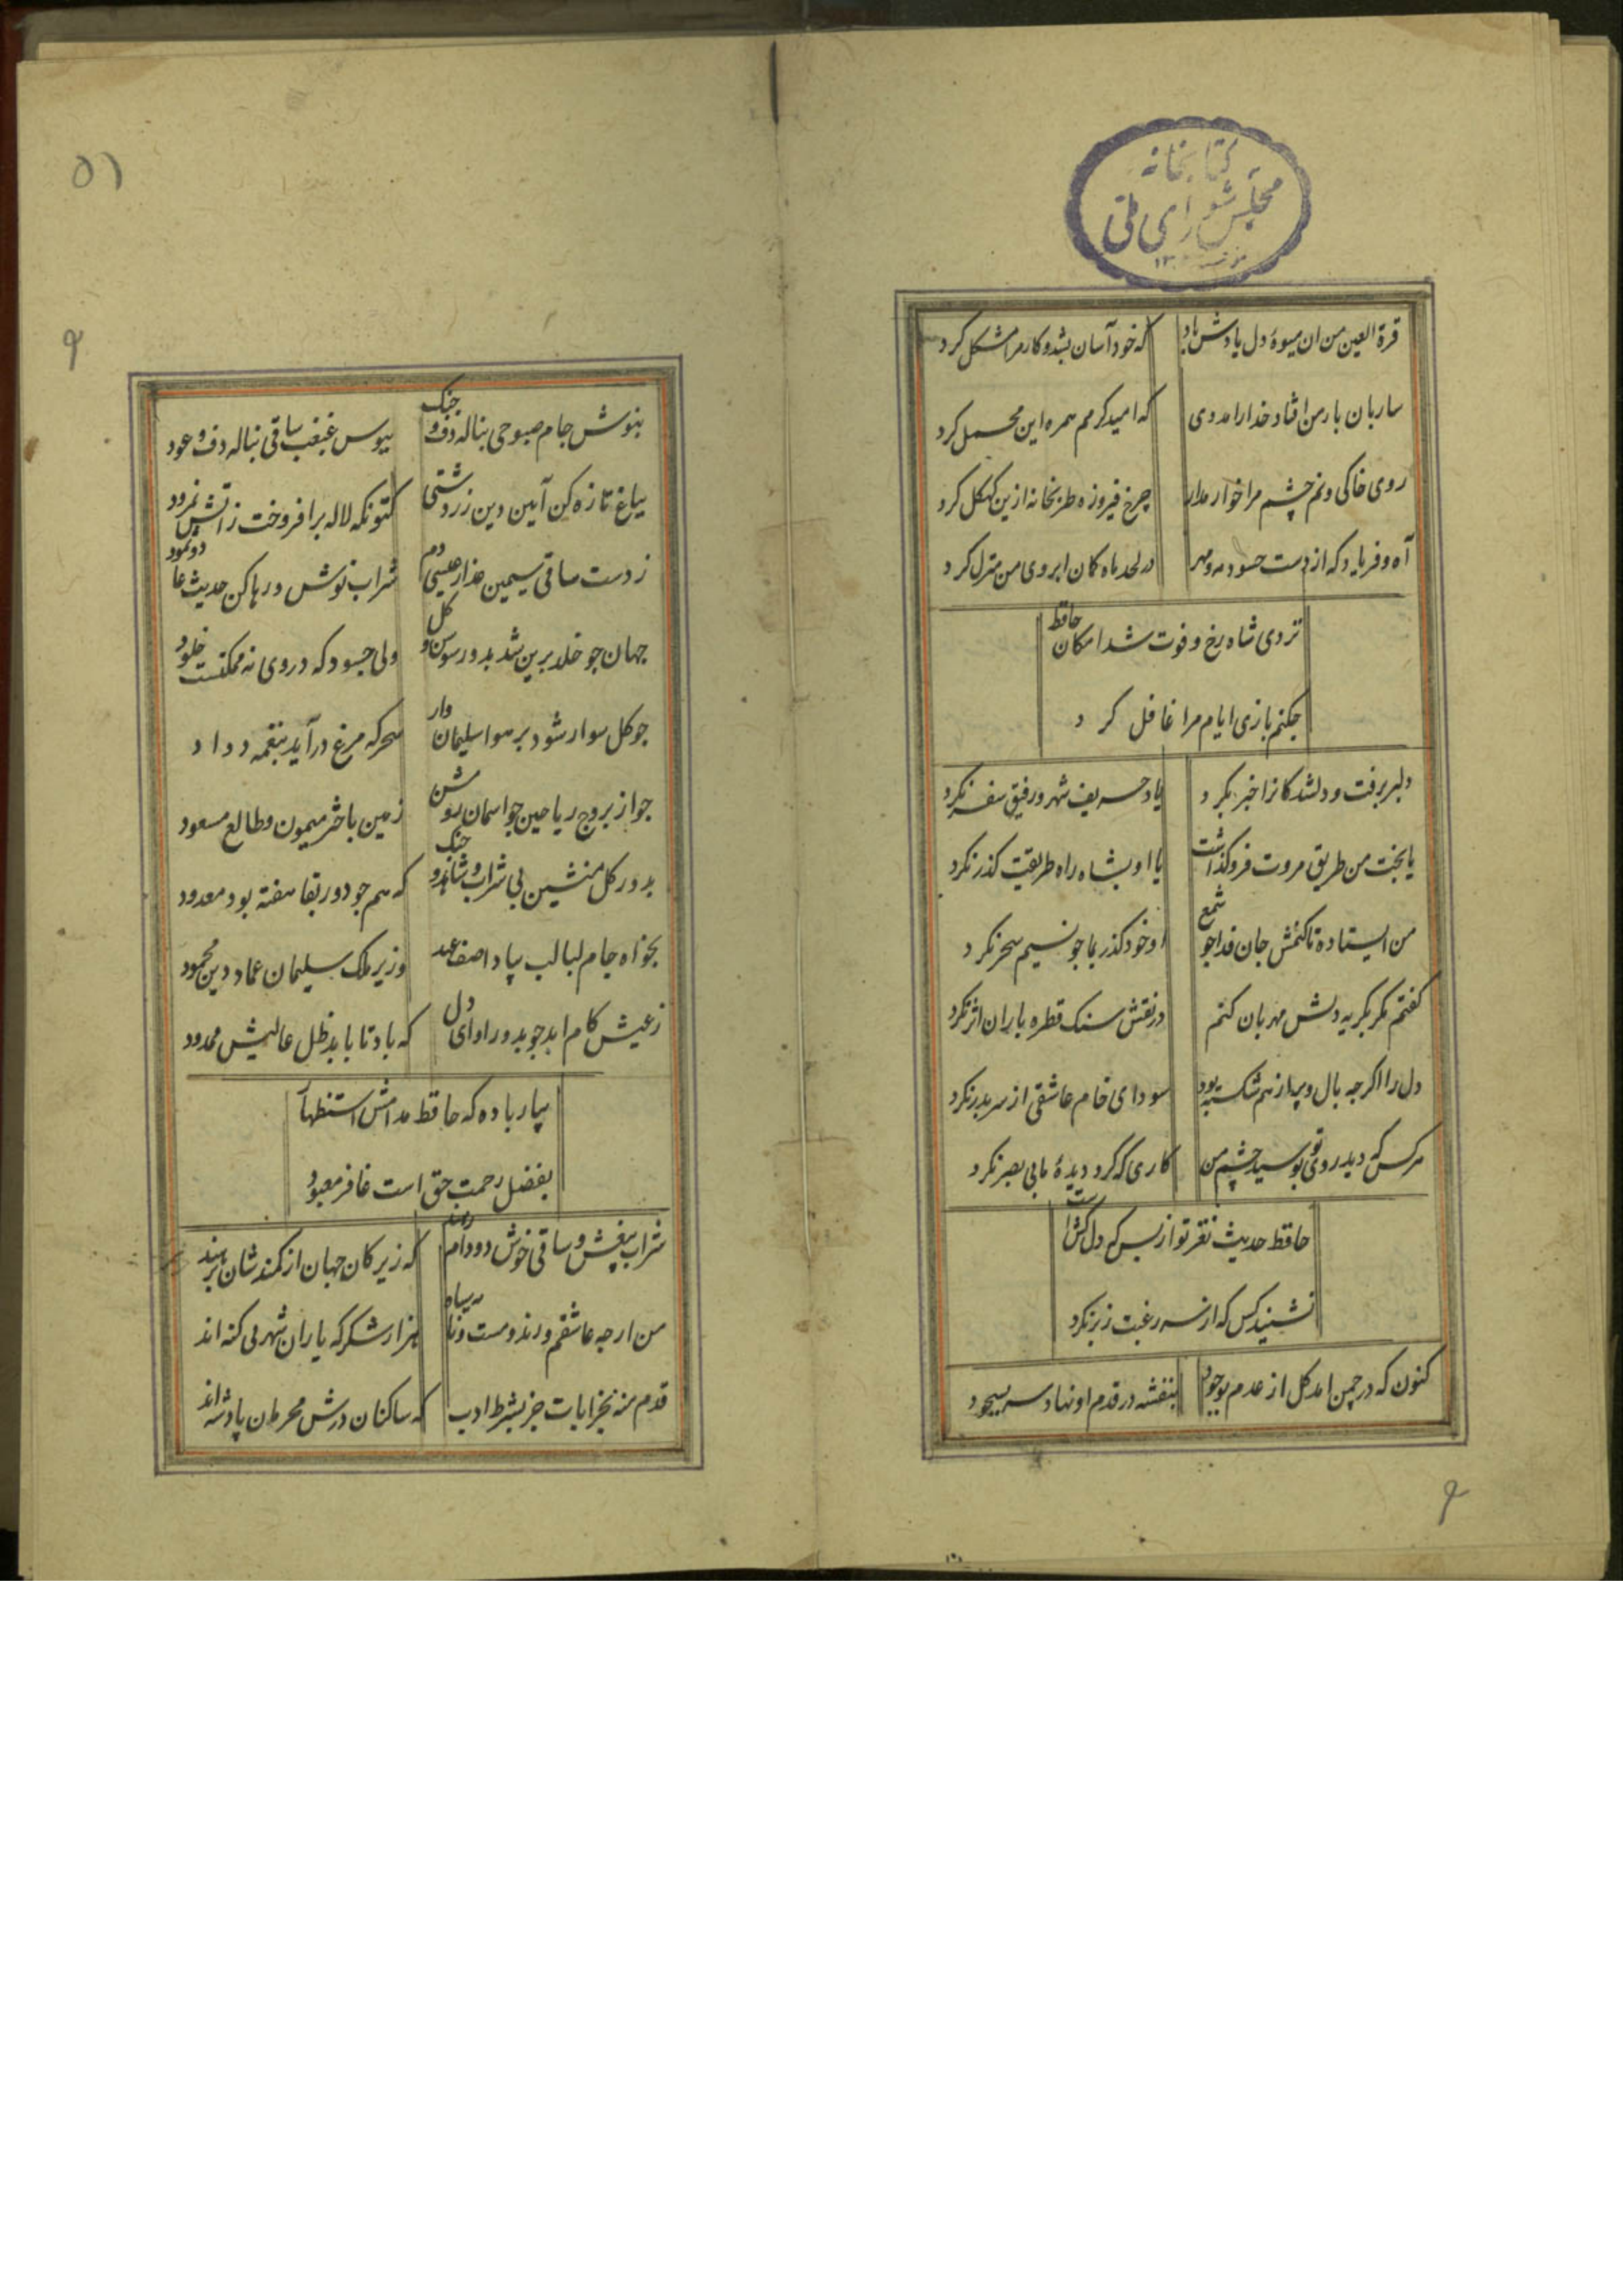 کتابخانه
مجلس شورای ملی
قرة العین من ان میوهٔ دل یادش باد که خود آسان بشد و کار مرا مشکل کرد
ساربان بار من افتاد خدارا مددی که امید کرمم همره این محمل کرد
روی خاکی ونم چشم مرا خوار مدار چرخ فیروزه طربخانه ازین کهکل کرد
آه و فریاد که از دست حسود مه و مهر در لحد ماه کمان ابروی من منزل کرد
نزدی شاه رخ و فوت شد امکان حافظ
جکنم بازی ایام مرا غافل کرد
دلبر برفت و دلشدکانرا خبر نکرد یاد حریف شهر و رفیق سفر نکرد
یا بخت من طریق مروت فروکذاشت یا او بشاه راه طریقت کذر نکرد
من ایستاده تا کنمش جان فدا جو شمع او خود کذر بما جو نسیم سحر نکرد
کفتم مکر بکریه دلش مهربان کنم در نقش سنک قطره باران اثر نکرد
دل را اکرجه بال و پر از هم شکسته بود سودای خام عاشقی از سر بدر نکرد
هرکس که دید روی تو بوسید چشم من کاری که کرد دیدهٔ ما بی بصر نکرد
حافظ حدیث نغز تو از بس که دل کش است
نشنید کس که از سر رغبت زبر نکرد
کنون که در چمن امد کل از عدم بوجود بنفشه در قدم او نهاد سر بسجود
۵۱
بنوش جام صبوحی بناله دف و جنک ببوس غبغب ساقی بناله دف و عود
بباغ تازه کن آیین دین زردشتی کنونکه لاله برافروخت زاتش نمرود
ز دست ساقی سیمین عذار عیسی دم شراب نوش و رها کن حدیث عاد و ثمود
جهان جو خلد برین شد بدور سوسن و کل ولی جسود که در وی نه ممکنست خلود
جو کل سوار شود بر هوا سلیمان وار سحر که مرغ درآید بنغمه داود
جو از بروج ریاحین جو اسمان روشن زمین باختر میمون و طالع مسعود
بدور کل منشین بی شراب و شاهد و جنک که هم جو دور بقا هفته بود معدود
بخواه جام لبالب بیاد اصف عهد وزیر ملک سلیمان عماد دین محمود
ز عیش کام ابد جو بدور او ای دل که باد تا بابد ظل عالیش ممدود
بیار باده که حافظ مدامش استظهار
بفضل رحمت حق است غافر معبود
شراب بیغش و ساقی خوش دو دام رهند که زیرکان جهان از کمندشان نرهند
من ارجه عاشقم و رند و مست و نامه سیاه هزار شکر که یاران شهر بی کنه اند
قدم منه بخرابات جز بشرط ادب که ساکنان درش محرمان پادشه اند